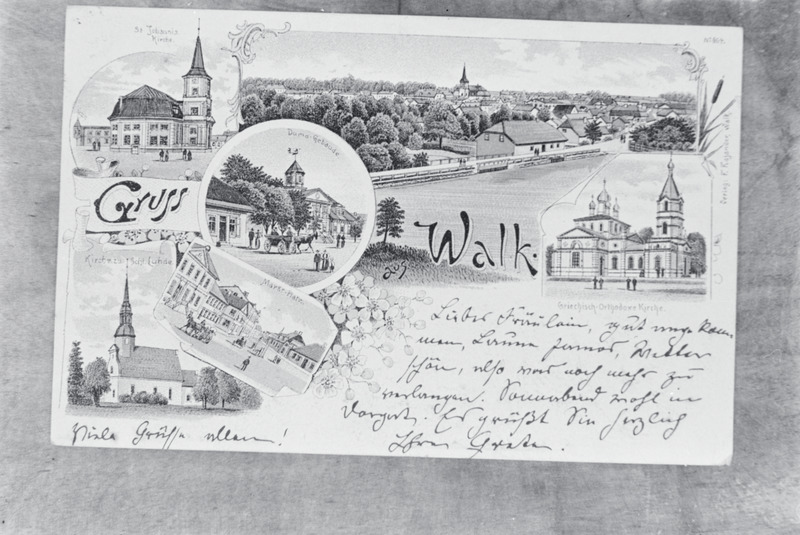 St. Johannis
Kirche.
No 864.
Duma-Gebäude
Gruss
aus
Walk.
Kirche zu
Luhde
Markt-Platz
Griechisch-Orthodoxe Kirche.
Verlag
Liebes Fräulein, gut ange kom
men, Laune famos, Wetter
schön, also was noch mehr zu
verlangen. Sonnabend wohl in
Dorpat. Es grüßt Sie herzlich
Ihre Grete.
Viele Grüsse allen!